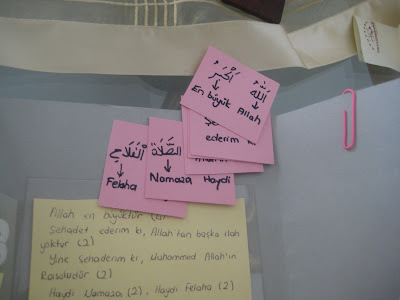 اَللّٰهُ اَكْبَرُ
En büyük Allah
Şe
ederim ki
الصَّلَاةِ
Namaza Haydi
اَلْفَلَاحِ
Felaha
Allah en büyüktür (4)
Şehadet ederim ki, Allah'tan başka ilah
yoktur (2)
Yine Şehaderim ki, Muhammed Allah'ın
Rasuludur (2)
Haydi Namaza (2), Haydi Felaha (2)